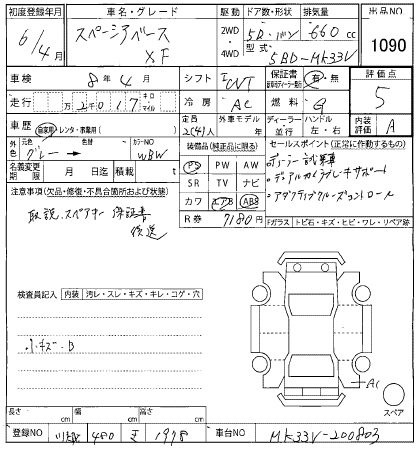 初度登録年月 車名・グレード 駆動 ドア数・形状 排気量 出品NO
6/4月 スペーシアベース XF 2WD 4WD 5D・バン 660cc 1090
型式 5BD-MK33V
車検 8年4月 シフト FCVT 保証書 有・無 評価点 5
走行 万2千017キロ マイル 冷房 AC 燃料 G
車歴 自家用・レンタ・事業用( ) 定員 2(4)人 外車モデル年 年 ディーラー・並行 ハンドル 左・右 内装評価 A
外色 元色 グレー→ 色替 カラーNO WBW 装備品(純正品に限る) セールスポイント(正常に作動するもの)
名義変更期限 月 日迄 積載 t PS PW AW ディーラー試乗車
注意事項(欠品・修復・不具合箇所および状態) SR TV ナビ ・デュアルカメラブレーキサポート
取説、スペアキー 保証書 カワ エアB ABS ・アダプティブクルーズコントロール
後送 R券 7180円
Fガラス トビ石・キズ・ヒビ・ワレ・リペア跡
検査員記入 内装 汚レ・スレ・キズ・キレ・コゲ・穴
・小キズ・B
A1
スペア
長さ cm 幅 cm 高さ cm
登録NO 480 1978 車台NO MK33V-200803